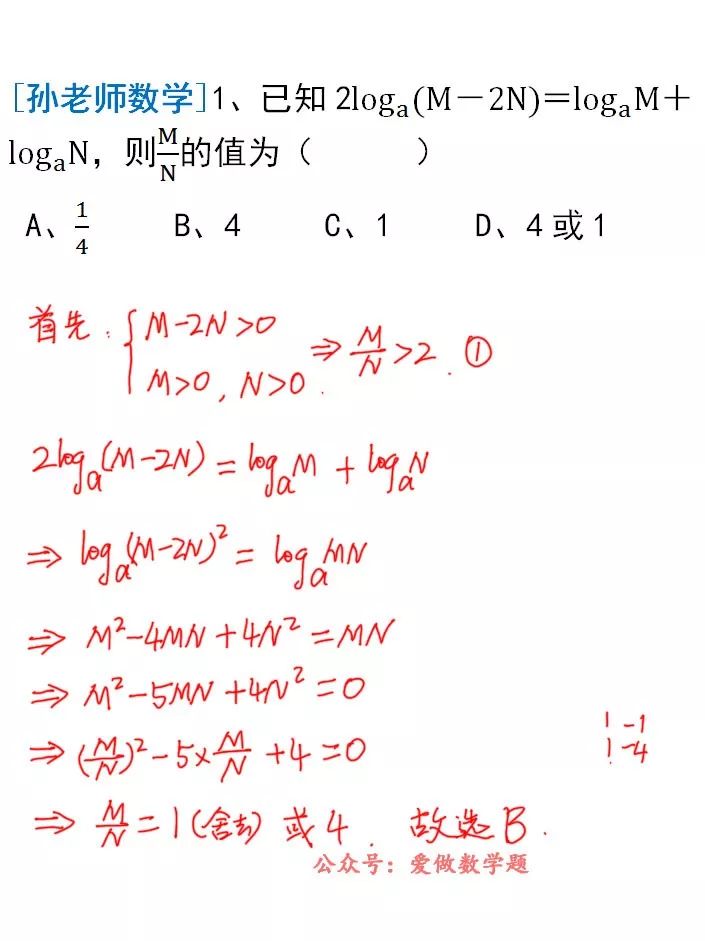 [孙老师数学]1、已知 2logₐ(M－2N)＝logₐM＋
logₐN，则M/N的值为（　　）
A、1/4　B、4　C、1　D、4 或 1
首先: { M-2N>0
M>0, N>0. ⇒ M/N >2. ①
2logₐ(M-2N) = logₐM + logₐN
⇒ logₐ(M-2N)² = logₐMN
⇒ M²-4MN+4N²=MN
⇒ M²-5MN+4N²=0
1 -1
⇒ (M/N)²-5×M/N+4=0
1 -4
⇒ M/N=1(舍去) 或4. 故选B.
公众号：爱做数学题